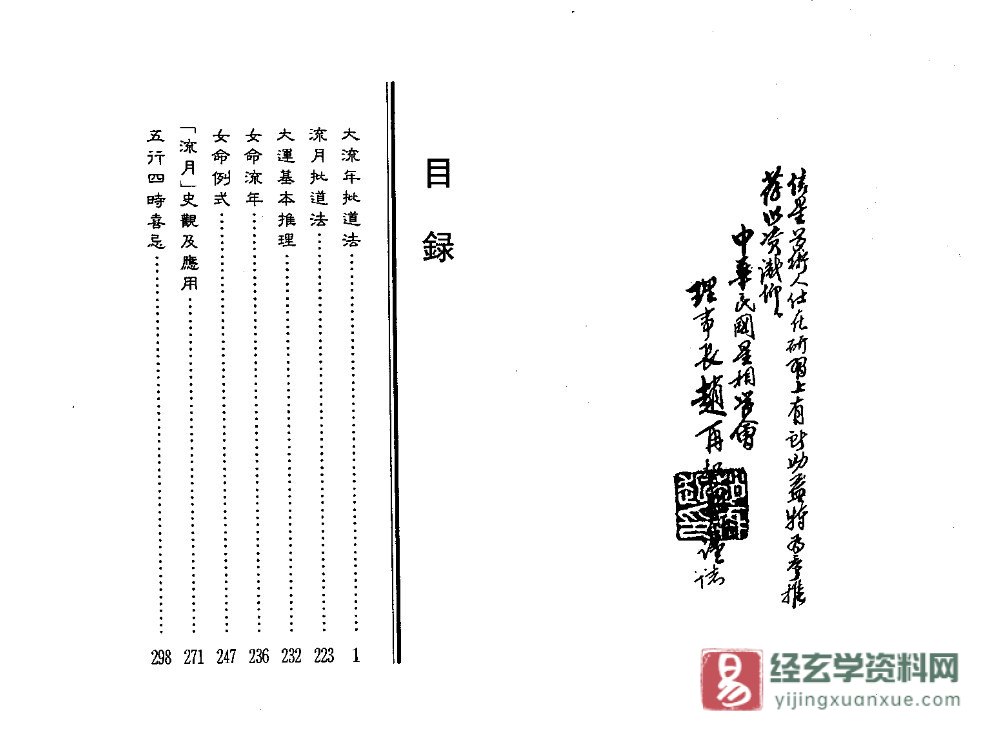 使星学術人仕在研習上有所助益特為序推
荐以资識仰
中華民國星相学會
理事長趙再
謹誌
目録
大流年批道法 1
流月批道法 223
大運基本推理 232
女命流年 236
女命例式 247
「流月」史觀及應用 271
五行四時喜忌 298
易
经玄学资料网
yijingxuanxue.com